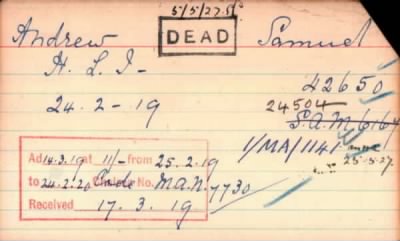 5/5/27.
DEAD
Andrew Samuel
H. L. I -
42650
24.2-19
24504
S.A.M 6164
1/MA/1141
25-5-27
Ad 14.3.19 at 11/- from 25.2.19
to 24.2.20 No. MAN. 7730
Received 17.3.19